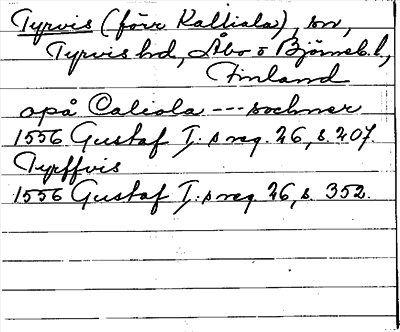 Tyrvis (förr Kalliala), sn,
Tyrvis hd, Åbo o Björneb. l,
Finland
opå Caliola --- sochner
1556 Gustaf I:s reg. 26, s. 207.
Tyrffvis
1556 Gustaf I:s reg. 26, s. 352.